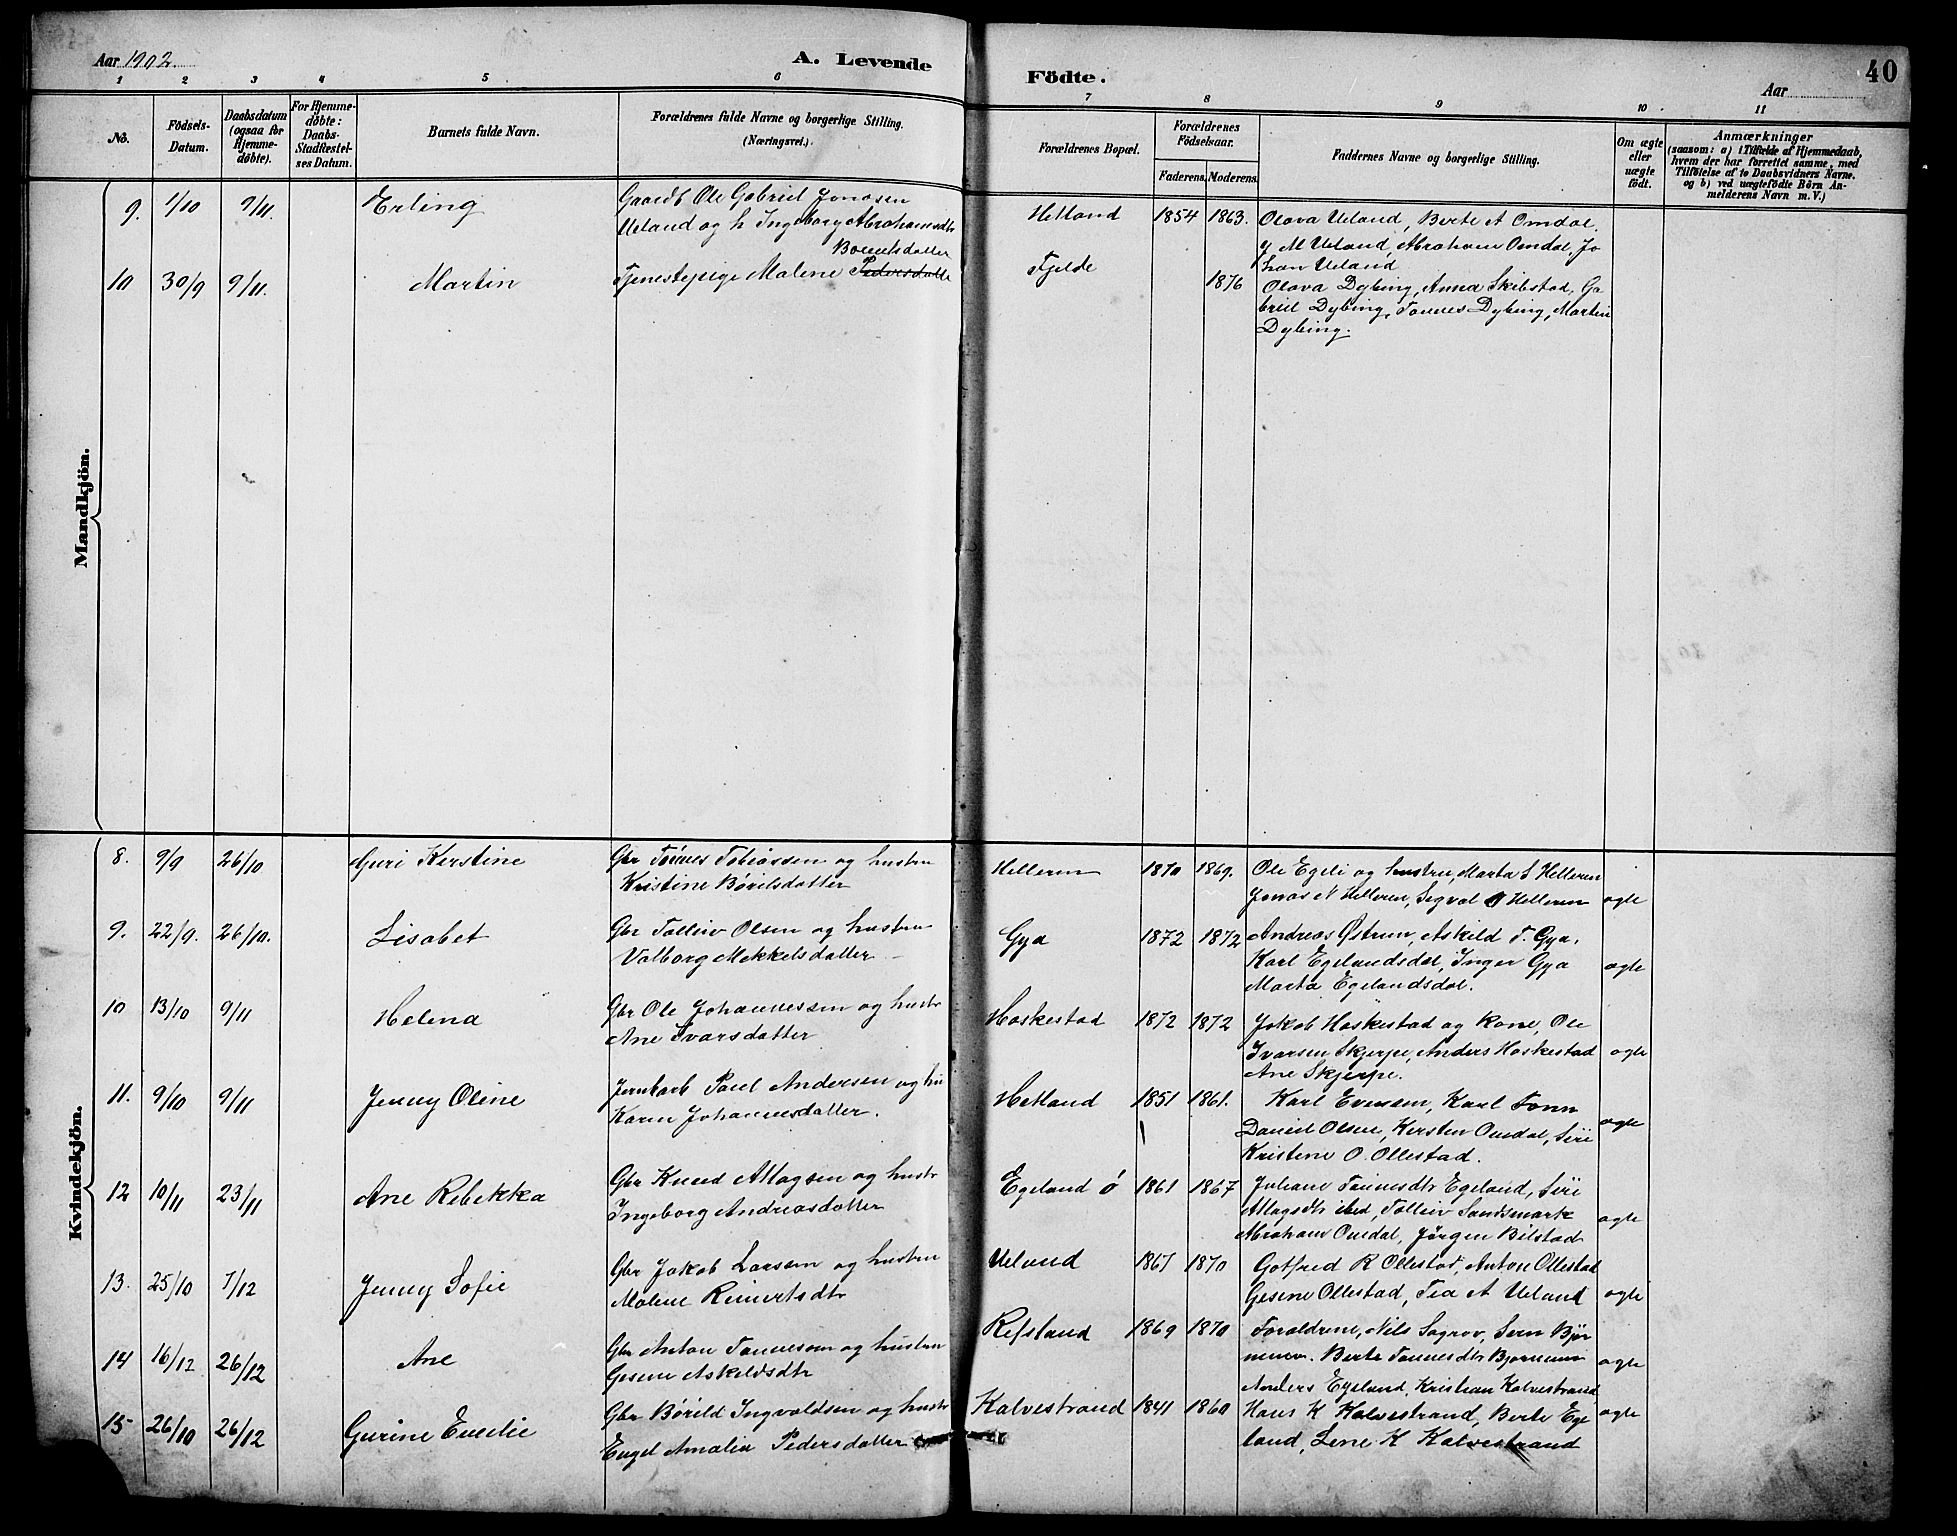 Aar 1902.
A. Levende
Födte.
Aar
40
1 2 3 4 5 6 7 8 9 10 11
No.
Födsels-
Datum.
Daabsdatum
(ogsaa for
Hjemme-
døbte).
For Hjemme-
døbte:
Daabs-
Stadfestel-
ses Datum.
Barnets fulde Navn.
Forældrenes fulde Navne og borgerlige Stilling.
(Næringsvei.)
Forældrenes Bopæl.
Forældrenes
Födselsaar.
Faderens. Moderens.
Faddernes Navne og borgerlige Stilling.
Om ægte
eller
uægte
födt.
Anmærkninger
(saasom: a) i Tilfælde af Hjemmedaab,
hvem der har forrettet samme, med
Tilföielse af to Daabsvidners Navne.
og b) ved uægtefödte Börn An-
melderens Navn m. V.)
Mandkjön.
9. 1/10 9/11. Erling
Gaardb Ole Gabriel Jonasen
Ueland og h Ingeborg Abrahamsdtr
Hetland 1854 1863.
Olava Ueland, Berte A Omdal,
M Ueland, Abraham Omdal, Jo
han Ueland
10 30/9 9/11. Martin
Bouetsdatter
Tjenestepige Malene Pedersdatte
Fjelde 1876
Olava Dybing, Anna Skibstad, Ga
briel Dybing, Tønnes Dybing, Martin
Dybing.
Kvindekjön.
8. 9/9 26/10 Guri Kerstine
Gbr Tønnes Tobiassen og hustru
Kristine Børilsdatter
Helleren 1870 1869.
Ole Egeli og hustru, Marta S Helleren
Jonas N Helleren, Segval O Helleren
ægte
9. 22/9. 26/10. Lisabet
Gbr Tolleiv Olsen og hustru
Valborg Mekkelsdatter
Gya 1872 1872
Andreas Østrem, Askild T. Gya,
Karl Egelandsdal, Inger Gya
Marta Egelandsdal.
ægte
10 13/10 9/11 Helena
Gbr Ole Johannessen og hustr
Ane Ivarsdatter
Haskestad 1872 1872
Jakob Haskestad og Kone, Ole
Ivarsen Skjerpe, Anders Haskestad
Ane Skjerpe.
ægte
11. 9/10 9/11 Jenny Oline
Jernbarb Paul Andersen og hu
Karen Johannesdatter.
Hetland 1851 1861.
Karl Evensen, Karl Tonn
Daniel Olsen, Kersten Omdal, Siri
Kristene O. Ollestad.
ægte
12 10/11 23/11 Ane Rebekka
Gbr Knud Atlagsen og hustr
Ingeborg Andreasdatter
Egeland ø 1861 1867
Juliane Tønnesdtr Egeland, Siri
Atlagsdtr ibd, Tolleiv Sandsmark
Abraham Omdal, Jørgen Bilstad
ægte
13. 25/10 7/12 Jenny Sofie
Gbr Jakob Larsen og hustru
Malene Reinertsdtr
Ueland 1867 1870
Gotfred R Ollestad, Anton Ollestad
Gesine Ollestad, Tea A Ueland
ægte
14 16/12 26/12 Ane
Gbr Anton Tønnesen og hustru
Gesine Askeldsdtr
Refsland 1869 1870
Foraldrene, Nils Sagrov, Sven Bjør
nmoen. Berte Tønnesdtr Bjørnmoen
Anders Egeland, Kristian Kalvestrand
ægte
15 26/10 26/12 Gurine Emilie
Gbr Børild Ingvaldsen og hustr
Engel Amalia Pedersdatter
Kalvestrand 1841 1860
Hans K Kalvestrand, Berte Ege
land, Lene K Kalvestrand
ægte